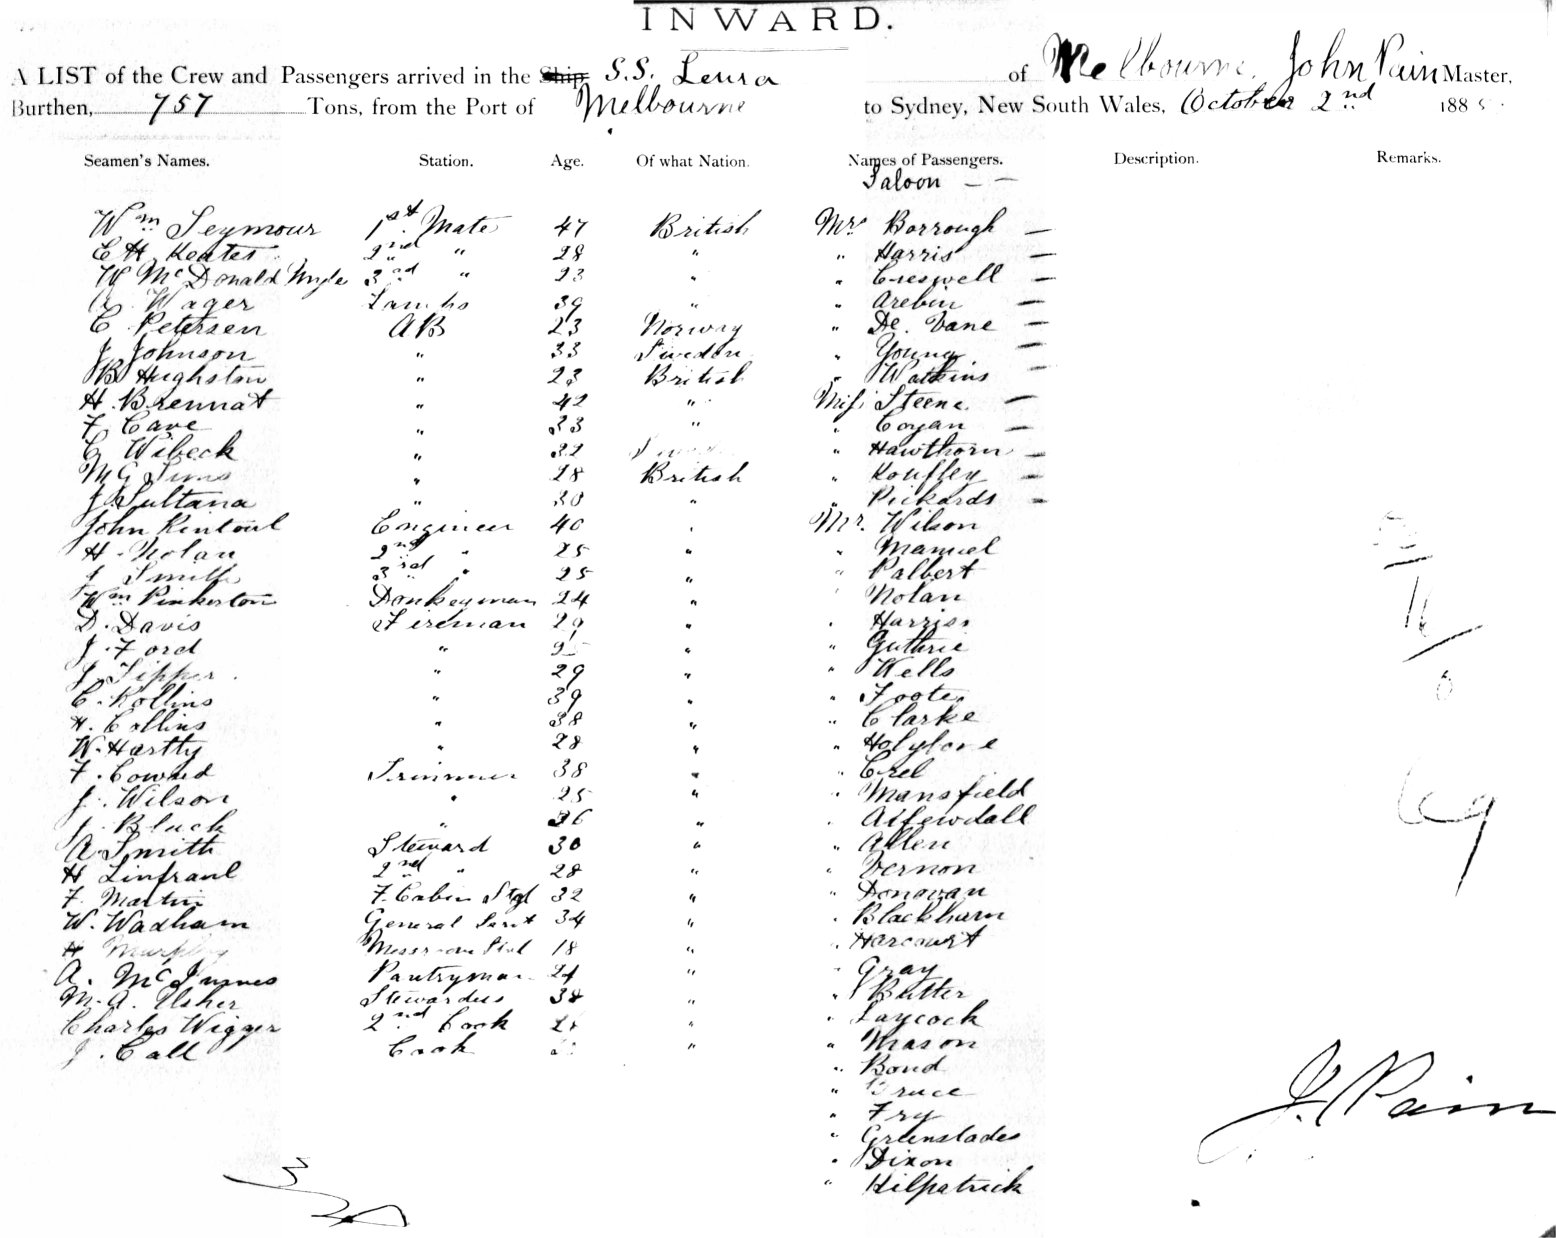 INWARD.
A LIST of the Crew and Passengers arrived in the Ship S.S. Leura of Melbourne, John Pain Master,
Burthen, 757 Tons, from the Port of Melbourne to Sydney, New South Wales, October 2nd 188
Seamen's Names. Station. Age. Of what Nation. Names of Passengers. Description. Remarks.
Saloon — —
Wm Seymour 1st Mate 47 British Mrs Borrough —
C H Keates 2nd " 28 " " Harris —
W McDonald 3rd " 23 " " Creswell —
Wager Lamps 39 " " Arebin —
C. Petersen AB 23 Norway " De. Vane —
J Johnson " 33 Sweden " Young —
B Hughston " 23 British " Watkins —
H. Brennat " 42 " Miss Steene —
F. Cave " 33 " " Coyan —
C Wibeck " 32 " Hawthorn —
M G Sims " 28 British " —
J Sultana " 30 " " Pickards —
John Rintoul Engineer 40 " Mr. Wilson
H. Nolan 2nd " 25 " " Manuel
J Smith 3rd " 25 " " Palbert
Wm Pinkerton Donkeyman 24 " " Nolan
D. Davis Fireman 29 " " Harriss
J. Ford " " " Guthrie
J. Tipper " 29 " " Wells
C. Rollins " 39 " " Foote
H. Collins " 38 " " Clarke
W. Hartly " 28 " " Holylove
F. Coward Trimmer 38 " "
J. Wilson " 25 " " Mansfield
J. Black " 36 " "
A Smith Steward 30 " " Allen
H Linfraul 2nd " 28 " " Vernon
F. Martin F. Cabin Std 32 " " Donovan
W. Wadham General Servt 34 " " Blackburn
H Murphy Messroom Std 18 " " Harcourt
A. McInnes Pantryman 24 " " Gray
M. A. Usher Stewardess 38 " " Butter
Charles Wigger 2nd Cook " " Laycock
J. Call Cook " " Mason
" Bond
" Bruce
" Fry
" Greenslades
" Dixon
" Kilpatrick
16
0
69
J. Pain